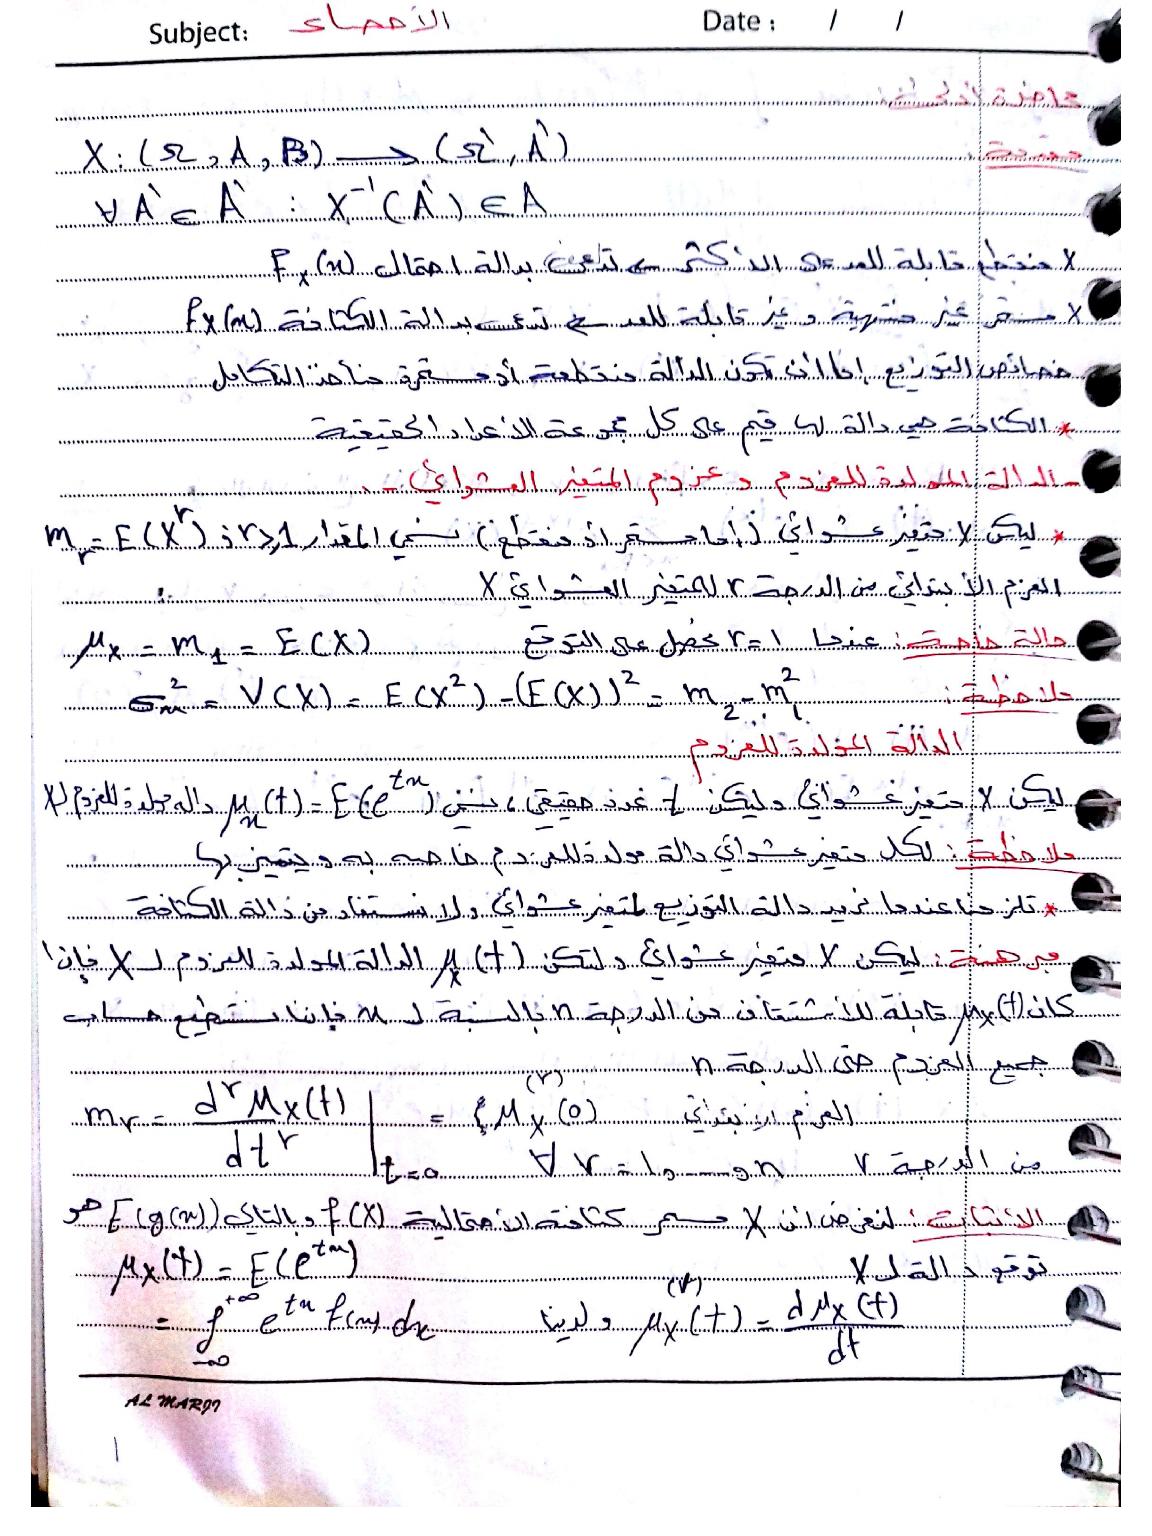 Subject: الأحصاء Date : / /
محاضرة أولى
مقدمة
X : (Ω, A, B) → (Ω`, A`)
∀ A` ∈ A` : X⁻¹(A`) ∈ A
X متقطع قابلة للعد على الأكثر ← تدعى بدالة احتمال fₓ(x)
X مستمر غير منتهية وغير قابلة للعد ← تدعى بدالة الكثافة fₓ(x)
خصائص التوزيع إما ان تكون الدالة متقطعة أو مستمرة نأخذ التكامل
* الكثافة هي دالة لها قيم على كل مجموعة الأعداد الحقيقية
- الدالة المولدة للعزوم وعزوم المتغير العشوائي -
* ليكن X متغير عشوائي (إما مستمر أو متقطع) نسمي المقدار mᵣ = E(Xʳ) ; r ≥ 1
العزم الأبتدائي من الدرجة r للمتغير العشوائي X
حالة خاصة : عندما r = 1 نحصل على التوقع μₓ = m₁ = E(X)
ملاحظة : σₓ² = V(X) = E(X²) - (E(X))² = m₂ - m₁²
الدالة المولدة للعزوم
ليكن X متغير عشوائي وليكن t عدد حقيقي ، نسمي μₓ(t) = E(eᵗˣ) دالة مولدة للعزوم لـ X
ملاحظة : لكل متغير عشوائي دالة مولدة للعزوم خاصه به ويتميز بها
* تلزمنا عندما نريد دالة التوزيع لمتغير عشوائي ولا نستفاد من دالة الكثافة
مبرهنة : ليكن X متغير عشوائي ولتكن μₓ(t) الدالة المولدة للعزوم لـ X فإن
كان μₓ(t) قابلة للأشتقاق من الدرجة n بالنسبة لـ x فإننا نستطيع حساب
جميع العزوم حتى الدرجة n
العزم الابتدائي mᵣ = dʳμₓ(t)/dtʳ |ₜ₌₀ = μₓ⁽ʳ⁾(0)
من الدرجة r ∀ r = 1, ..., n
الأثبات : لنفرض ان X مستمر كثافة الأحتمالية f(X) وبالتالي E(g(x)) هو
توقع دالة لـ X μₓ(t) = E(eᵗˣ)
= ∫₋∞⁺∞ eᵗˣ f(x) dx ولدينا μₓ⁽¹⁾(t) = dμₓ(t)/dt
AL MARJI
1